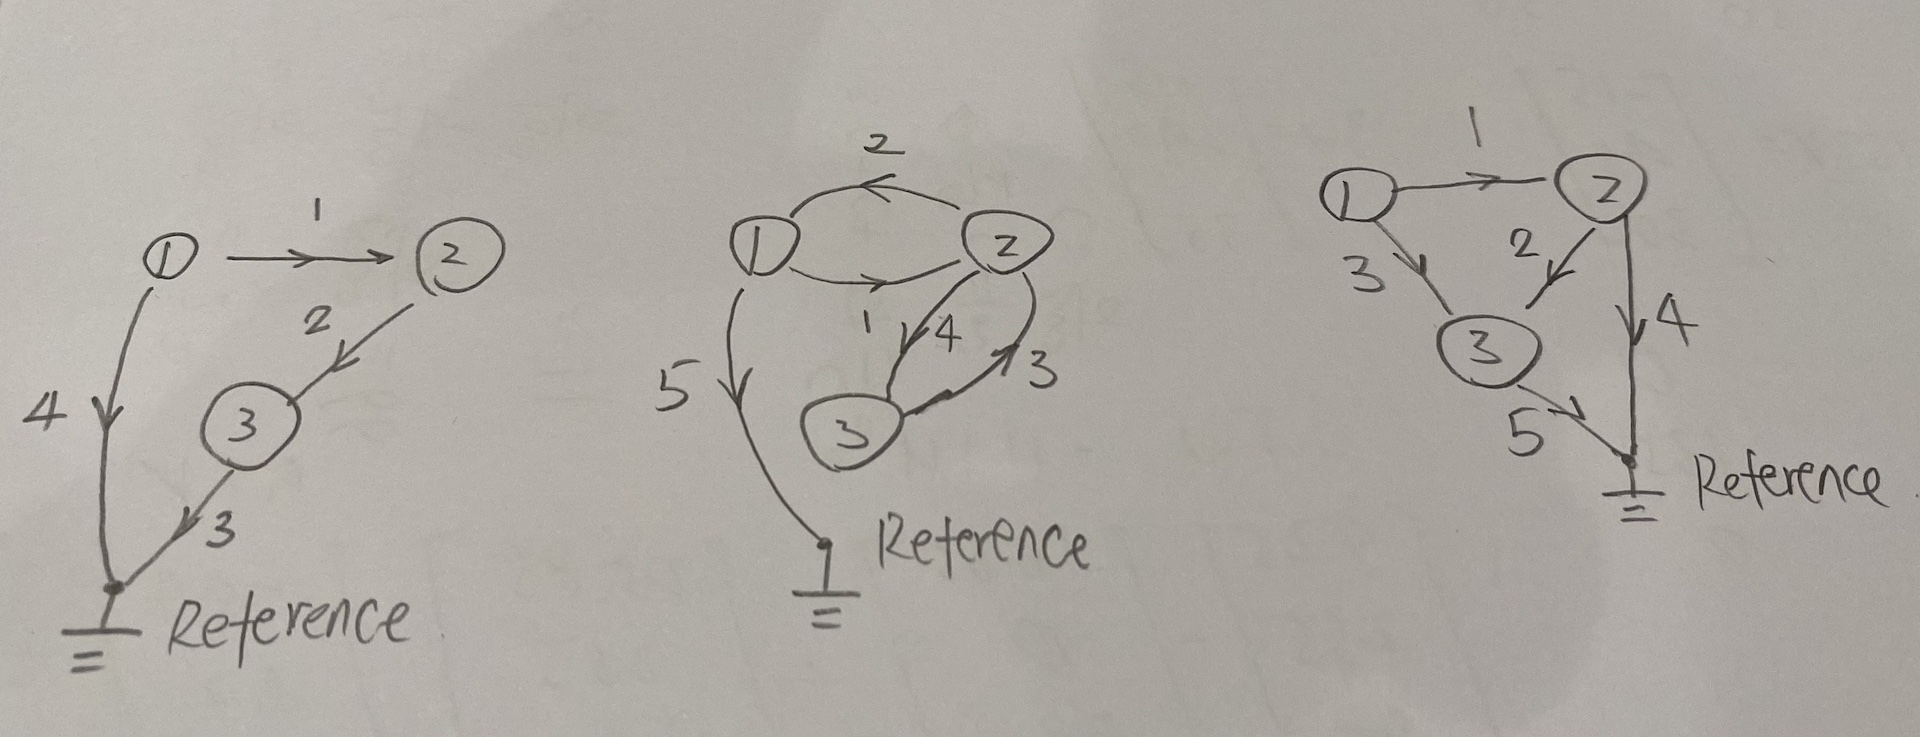 1
① ②
2
4
③
3
Reference
2
① ②
1 4
5 3
③
Reference
1
① ②
3 2
4
③
5
Reference